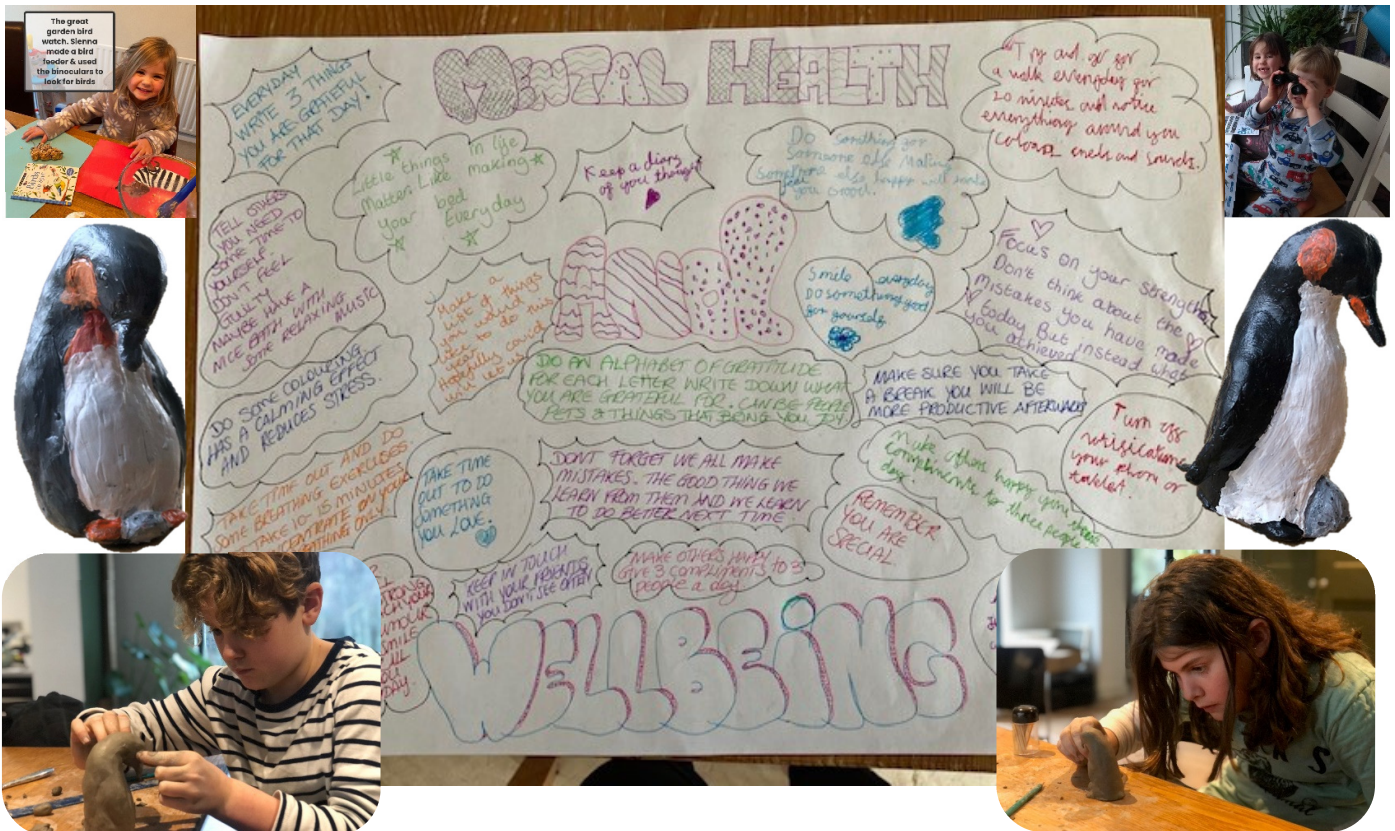 The great
garden bird
watch. Sienna
made a bird
feeder & used
the binoculars to
look for birds
MENTAL HEALTH
EVERYDAY
WRITE 3 THINGS
YOU ARE GRATEFUL
FOR THAT DAY!
Little things in life
Matter. Like making
your bed
Everyday
Keep a diary
of you thought
Do something for
someone else Making
something else happy will make
feel
you Good.
"Try and go for
a walk everyday for
20 minutes and notice
everything around you
smels and sounds.
TELL OTHERS
YOU NEED
SOME TIME TO
YOURSELF.
DON'T FEEL
GUILTY
MAYBE HAVE A
NICE BATH WITH
SOME RELAXING MUSIC
Make a
list of things
you would
like to do this
year.
Hopefully covid
will let us
AND
Smile everyday
DO something good
for yourself.
Focus on your strengths
Don't think about the
mistakes you have made
today But instead what
you achieved
DO SOME COLOURING
HAS A CALMING EFFECT
AND REDUCES STRESS.
DO AN ALPHABET OF GRATITUDE
FOR EACH LETTER WRITE DOWN WHAT
YOU ARE GRATEFUL FOR. CAN BE PEOPLE
PETS & THINGS THAT BRING YOU JOY
MAKE SURE YOU TAKE
A BREAK YOU WILL BE
MORE PRODUCTIVE AFTERWARDS
Turn off
your phone or
tablet.
TAKE TIME OUT AND DO
SOME BREATHING EXERCISES.
TAKE 10-15 MINUTES
CONCENTRATE ON YOUR
BREATHING ONLY
TAKE TIME
OUT TO DO
SOMETHING
YOU LOVE.
DON'T FORGET WE ALL MAKE
MISTAKES. THE GOOD THING WE
LEARN FROM THEM AND WE LEARN
TO DO BETTER NEXT TIME
Make others happy give three
compliments to three people
day.
REMEMBER
YOU ARE
SPECIAL
KEEP IN TOUCH
WITH YOUR FRIENDS
YOU DON'T SEE OFTEN
MAKE OTHERS HAPPY
GIVE 3 COMPLIMENTS TO 3
people a day
SMILE
DAY.
WELLBEING